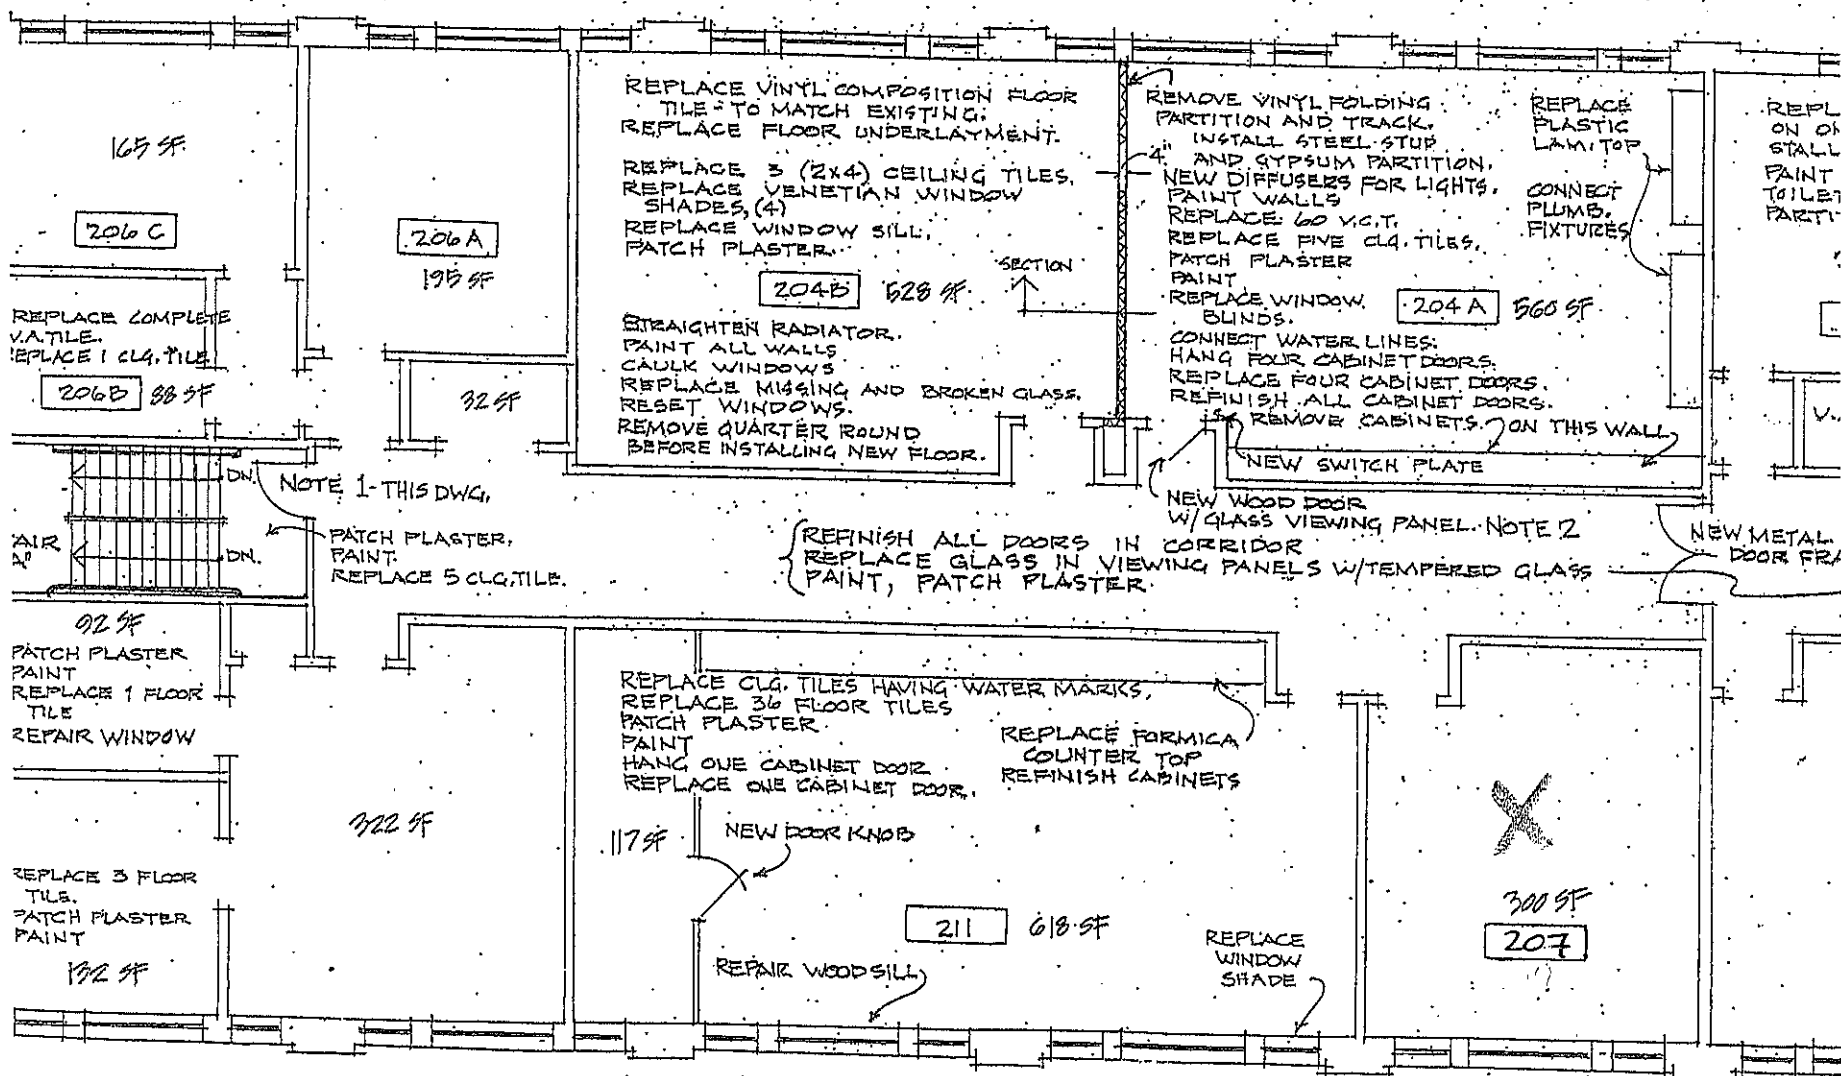 165 SF
206 C
REPLACE COMPLETE
V.A.TILE.
REPLACE 1 CLG. TILE
206B 88 SF
206A
195 SF
32 SF
REPLACE VINYL COMPOSITION FLOOR
TILE - TO MATCH EXISTING.
REPLACE FLOOR UNDERLAYMENT.
REPLACE 3 (2x4) CEILING TILES.
REPLACE VENETIAN WINDOW
SHADES, (4)
REPLACE WINDOW SILL.
PATCH PLASTER.
204B 528 SF
SECTION
STRAIGHTEN RADIATOR.
PAINT ALL WALLS
CAULK WINDOWS
REPLACE MISSING AND BROKEN GLASS.
RESET WINDOWS.
REMOVE QUARTER ROUND
BEFORE INSTALLING NEW FLOOR.
REMOVE VINYL FOLDING
PARTITION AND TRACK.
INSTALL STEEL STUD
4" AND GYPSUM PARTITION.
NEW DIFFUSERS FOR LIGHTS.
PAINT WALLS
REPLACE 60 V.C.T.
REPLACE FIVE CLG. TILES.
PATCH PLASTER
PAINT
REPLACE WINDOW
BLINDS.
204 A 560 SF
CONNECT WATER LINES.
HANG FOUR CABINET DOORS.
REPLACE FOUR CABINET DOORS.
REFINISH ALL CABINET DOORS.
REMOVE CABINETS ON THIS WALL
NEW SWITCH PLATE
REPLACE
PLASTIC
LAM. TOP
CONNECT
PLUMB.
FIXTURES
REPL
ON
STALL
PAINT
TOILET
PARTI
V.
DN.
DN.
AIR
A"
NOTE 1-THIS DWG.
PATCH PLASTER.
PAINT.
REPLACE 5 CLG.TILE.
NEW WOOD DOOR
W/GLASS VIEWING PANEL. NOTE 2
REFINISH ALL DOORS IN CORRIDOR
REPLACE GLASS IN VIEWING PANELS W/TEMPERED GLASS
PAINT, PATCH PLASTER.
NEW METAL
DOOR FRA
92 SF
PATCH PLASTER
PAINT
REPLACE 1 FLOOR
TILE
REPAIR WINDOW
REPLACE 3 FLOOR
TILE.
PATCH PLASTER
PAINT
132 SF
322 SF
117 SF
REPLACE CLG. TILES HAVING WATER MARKS.
REPLACE 36 FLOOR TILES
PATCH PLASTER
PAINT
HANG ONE CABINET DOOR
REPLACE ONE CABINET DOOR.
REPLACE FORMICA
COUNTER TOP
REFINISH CABINETS
NEW DOOR KNOB
211 618 SF
REPAIR WOOD SILL
REPLACE
WINDOW
SHADE
X
300 SF
207